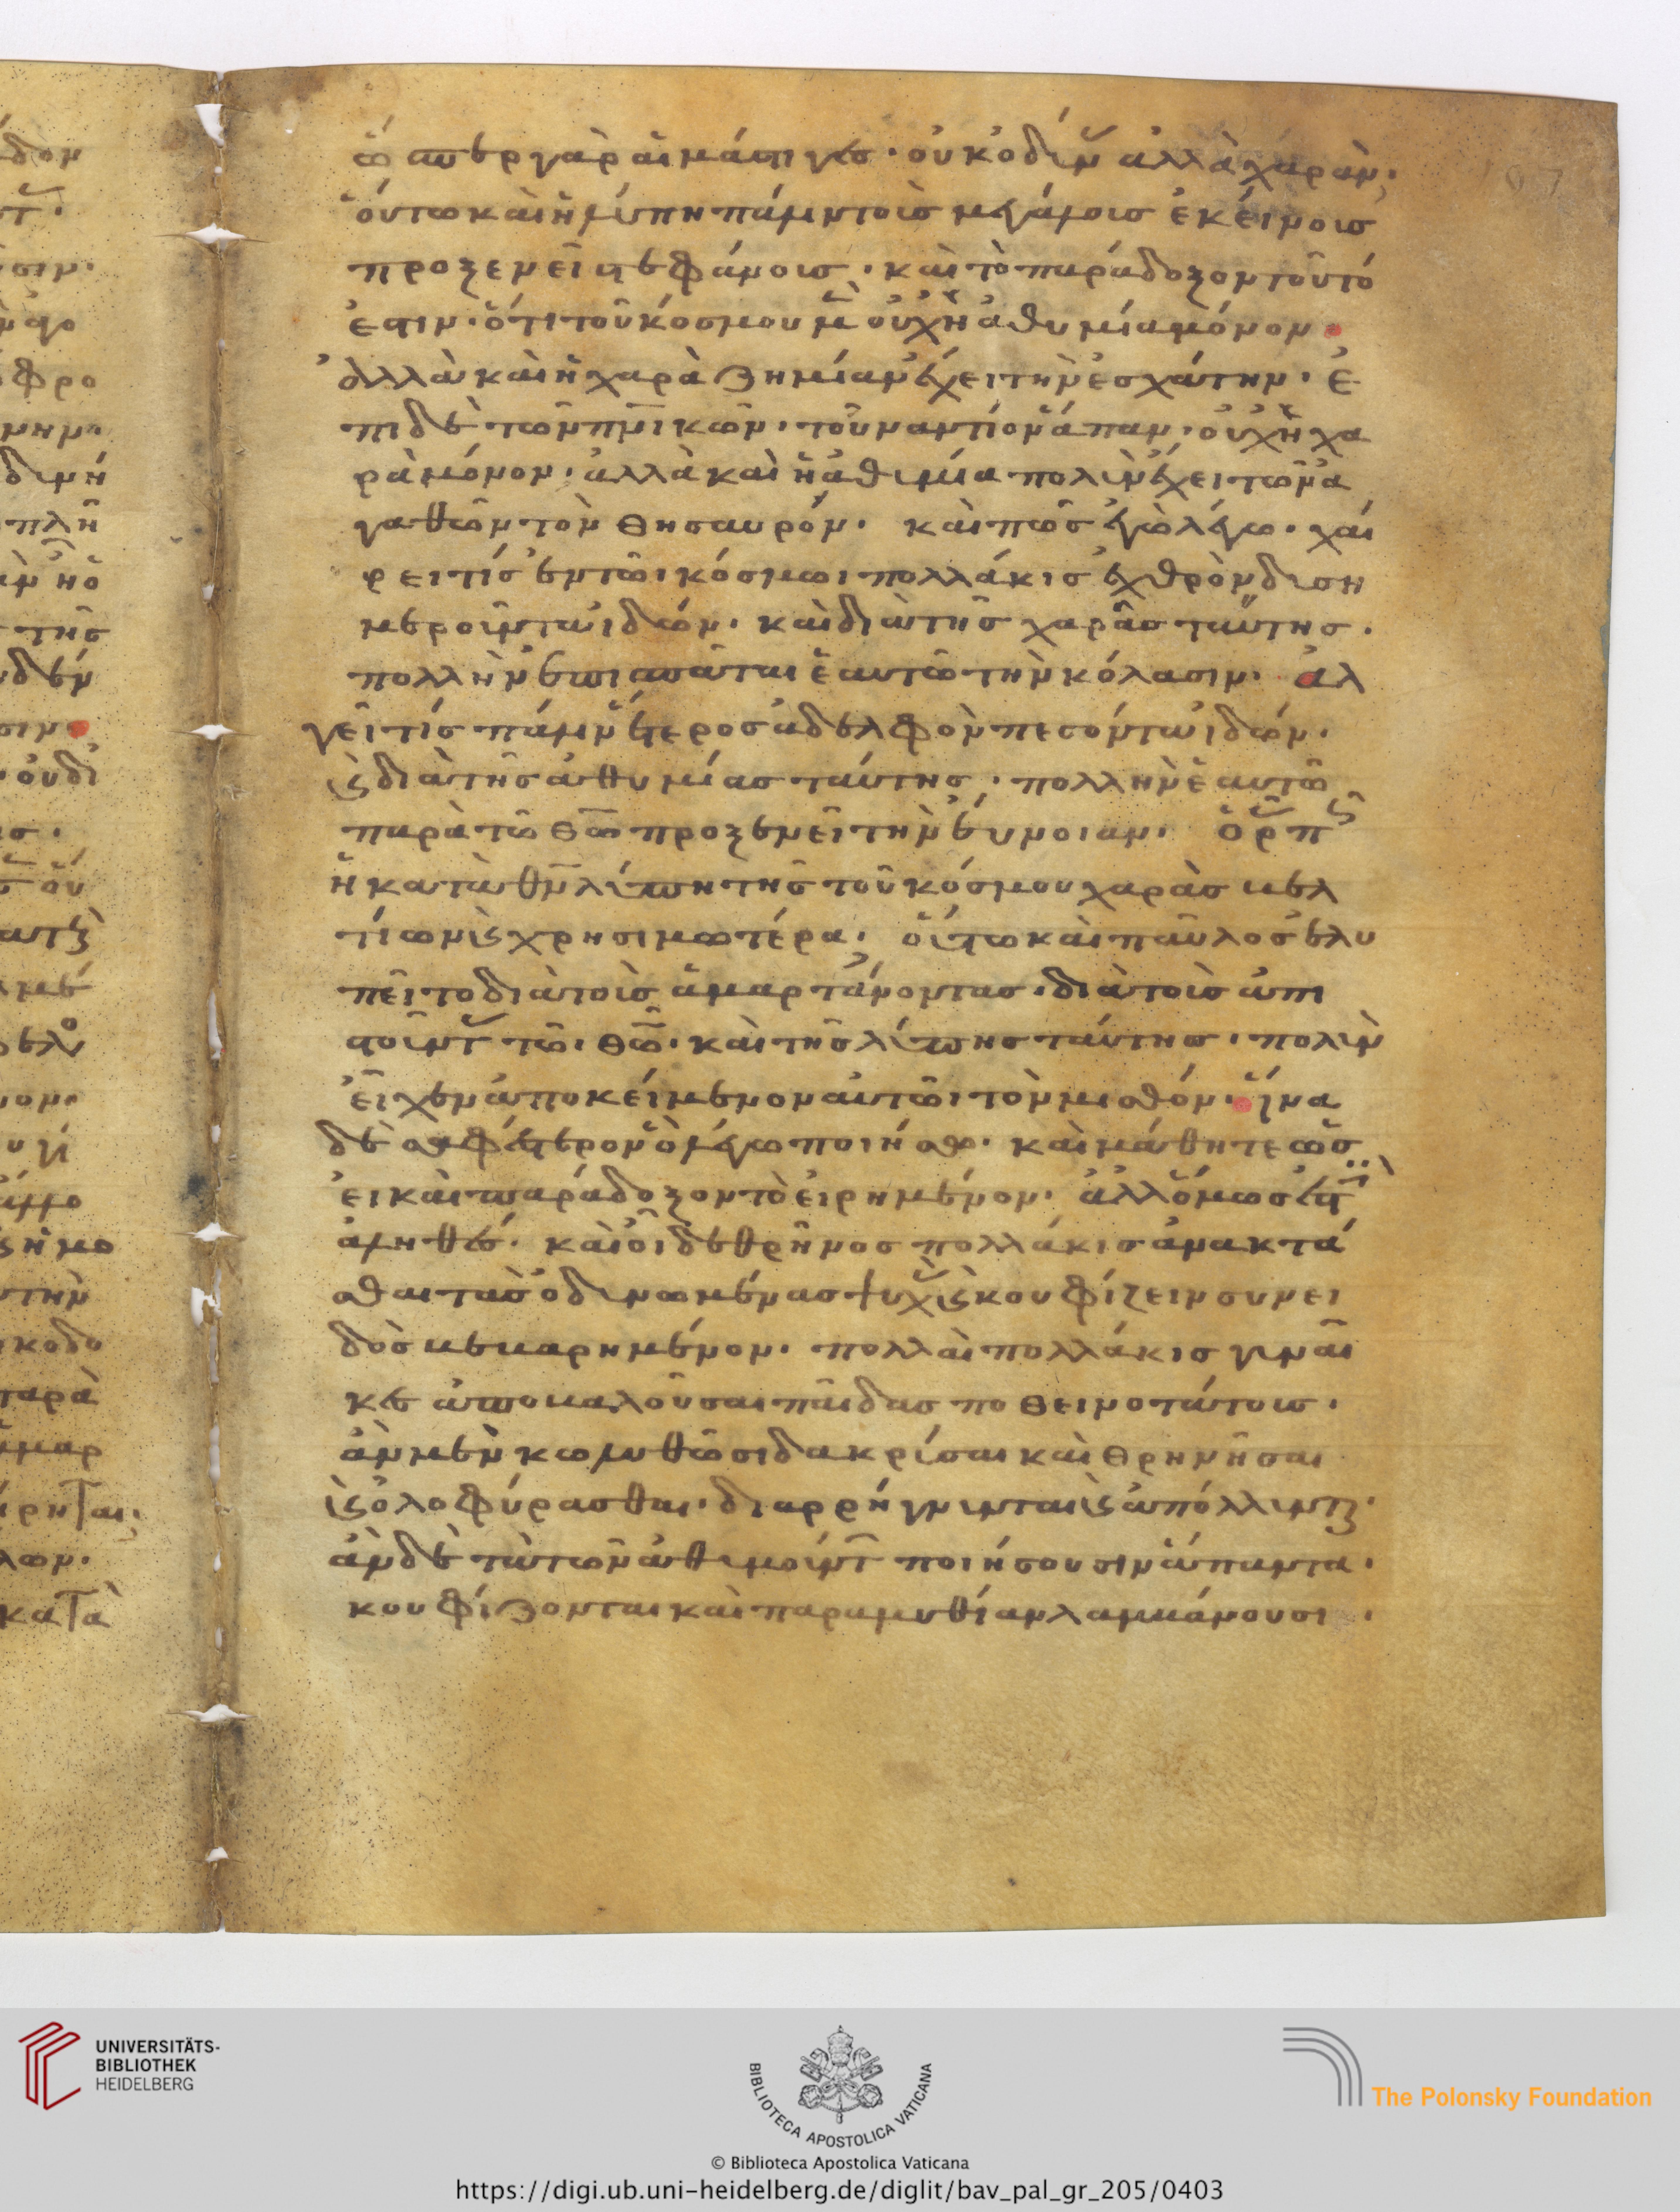 ὥσπερ γὰρ αἱ μάστιγες· οὐκ ὀδύνην ἀλλὰ χαρὰν·
οὕτω καὶ ἡ λύπη πάλιν τοῖς μεγάλοις ἐκείνοις
προξενεῖ στεφάνοις· καὶ τὸ παράδοξον τοῦτό
ἐστιν· ὅτι τοῦ κόσμου μὲν οὐχ ἡ ἀθυμία μόνον·
ἀλλὰ καὶ ἡ χαρὰ ζημίαν ἔχει τὴν ἐσχάτην· ἐ
πὶ δὲ τῶν πνικῶν· τοὐναντίον ἅπαν· οὐχ ἡ χα
ρὰ μόνον· ἀλλὰ καὶ ἡ ἀθυμία πολὺν ἔχει τῶν ἀ
γαθῶν τὸν θησαυρόν· καὶ πῶς ἐγὼ λέγω· χαί
ρει τίς ἐν τῶι κόσμωι πολλάκις ἐχθρὸν δυση
μεροῦντα ἰδών· καὶ διὰ τῆς χαρᾶς ταύτης·
πολλὴν ἐπισπᾶται ἑαυτῶ τὴν κόλασιν· ἀλ
γεῖ τίς πάλιν ἕτερος ἀδελφὸν πεσόντα ἰδών·
καὶ διὰ τῆς ἀθυμίας ταύτης· πολλὴν ἑαυτῶ
παρὰ τῶ θῶ προξενεῖ τὴν εὔνοιαν· ὁρᾶς πῶς
ἡ κατὰ θν λύπη τῆς τοῦ κόσμου χαρᾶς βελ
τίων καὶ χρησιμωτέρα· οὕτω καὶ παῦλος ἐλυ
πεῖτο διὰ τοὺς ἁμαρτάνοντας· διὰ τοὺς ἀπι
στοῦντας τῶ· θῶ· καὶ τῆς λύπης ταύτης· πολὺν
εἶχεν ἀποκείμενον αὐτῶι τὸν μισθόν· ἵνα
δὲ σαφέστερον ὃ λέγω ποιήσω· καὶ μάθητε ὡς
εἰ καὶ παράδοξον τὸ εἰρημένον· ἀλλ' ὅμως ἐστὶν
ἀληθές· καὶ οἶδε θρῆνος πολλάκις ἀνακτᾶ
σθαι τὰς ὀδυνωμένας ψυχὰς καὶ κουφίζειν συνει
δὸς βεβαρημένον· πολλαὶ πολλάκις γυναῖ
κες ἀποβαλοῦσαι παῖδας ποθεινοτάτους·
ἂν μὲν κωλυθῶσι δακρύσαι καὶ θρηνῆσαι
καὶ ὀλοφύρασθαι· διαρρήγνυνται καὶ ἀπόλλυνται·
ἂν δὲ τὰ τῶν ἀθυμούντων ποιήσουσιν ἅπαντα·
κουφίζονται καὶ παραμυθίαν λαμβάνουσι·
UNIVERSITÄTS-
BIBLIOTHEK
HEIDELBERG
BIBLIOTECA APOSTOLICA VATICANA
The Polonsky Foundation
© Biblioteca Apostolica Vaticana
https://digi.ub.uni-heidelberg.de/diglit/bav_pal_gr_205/0403